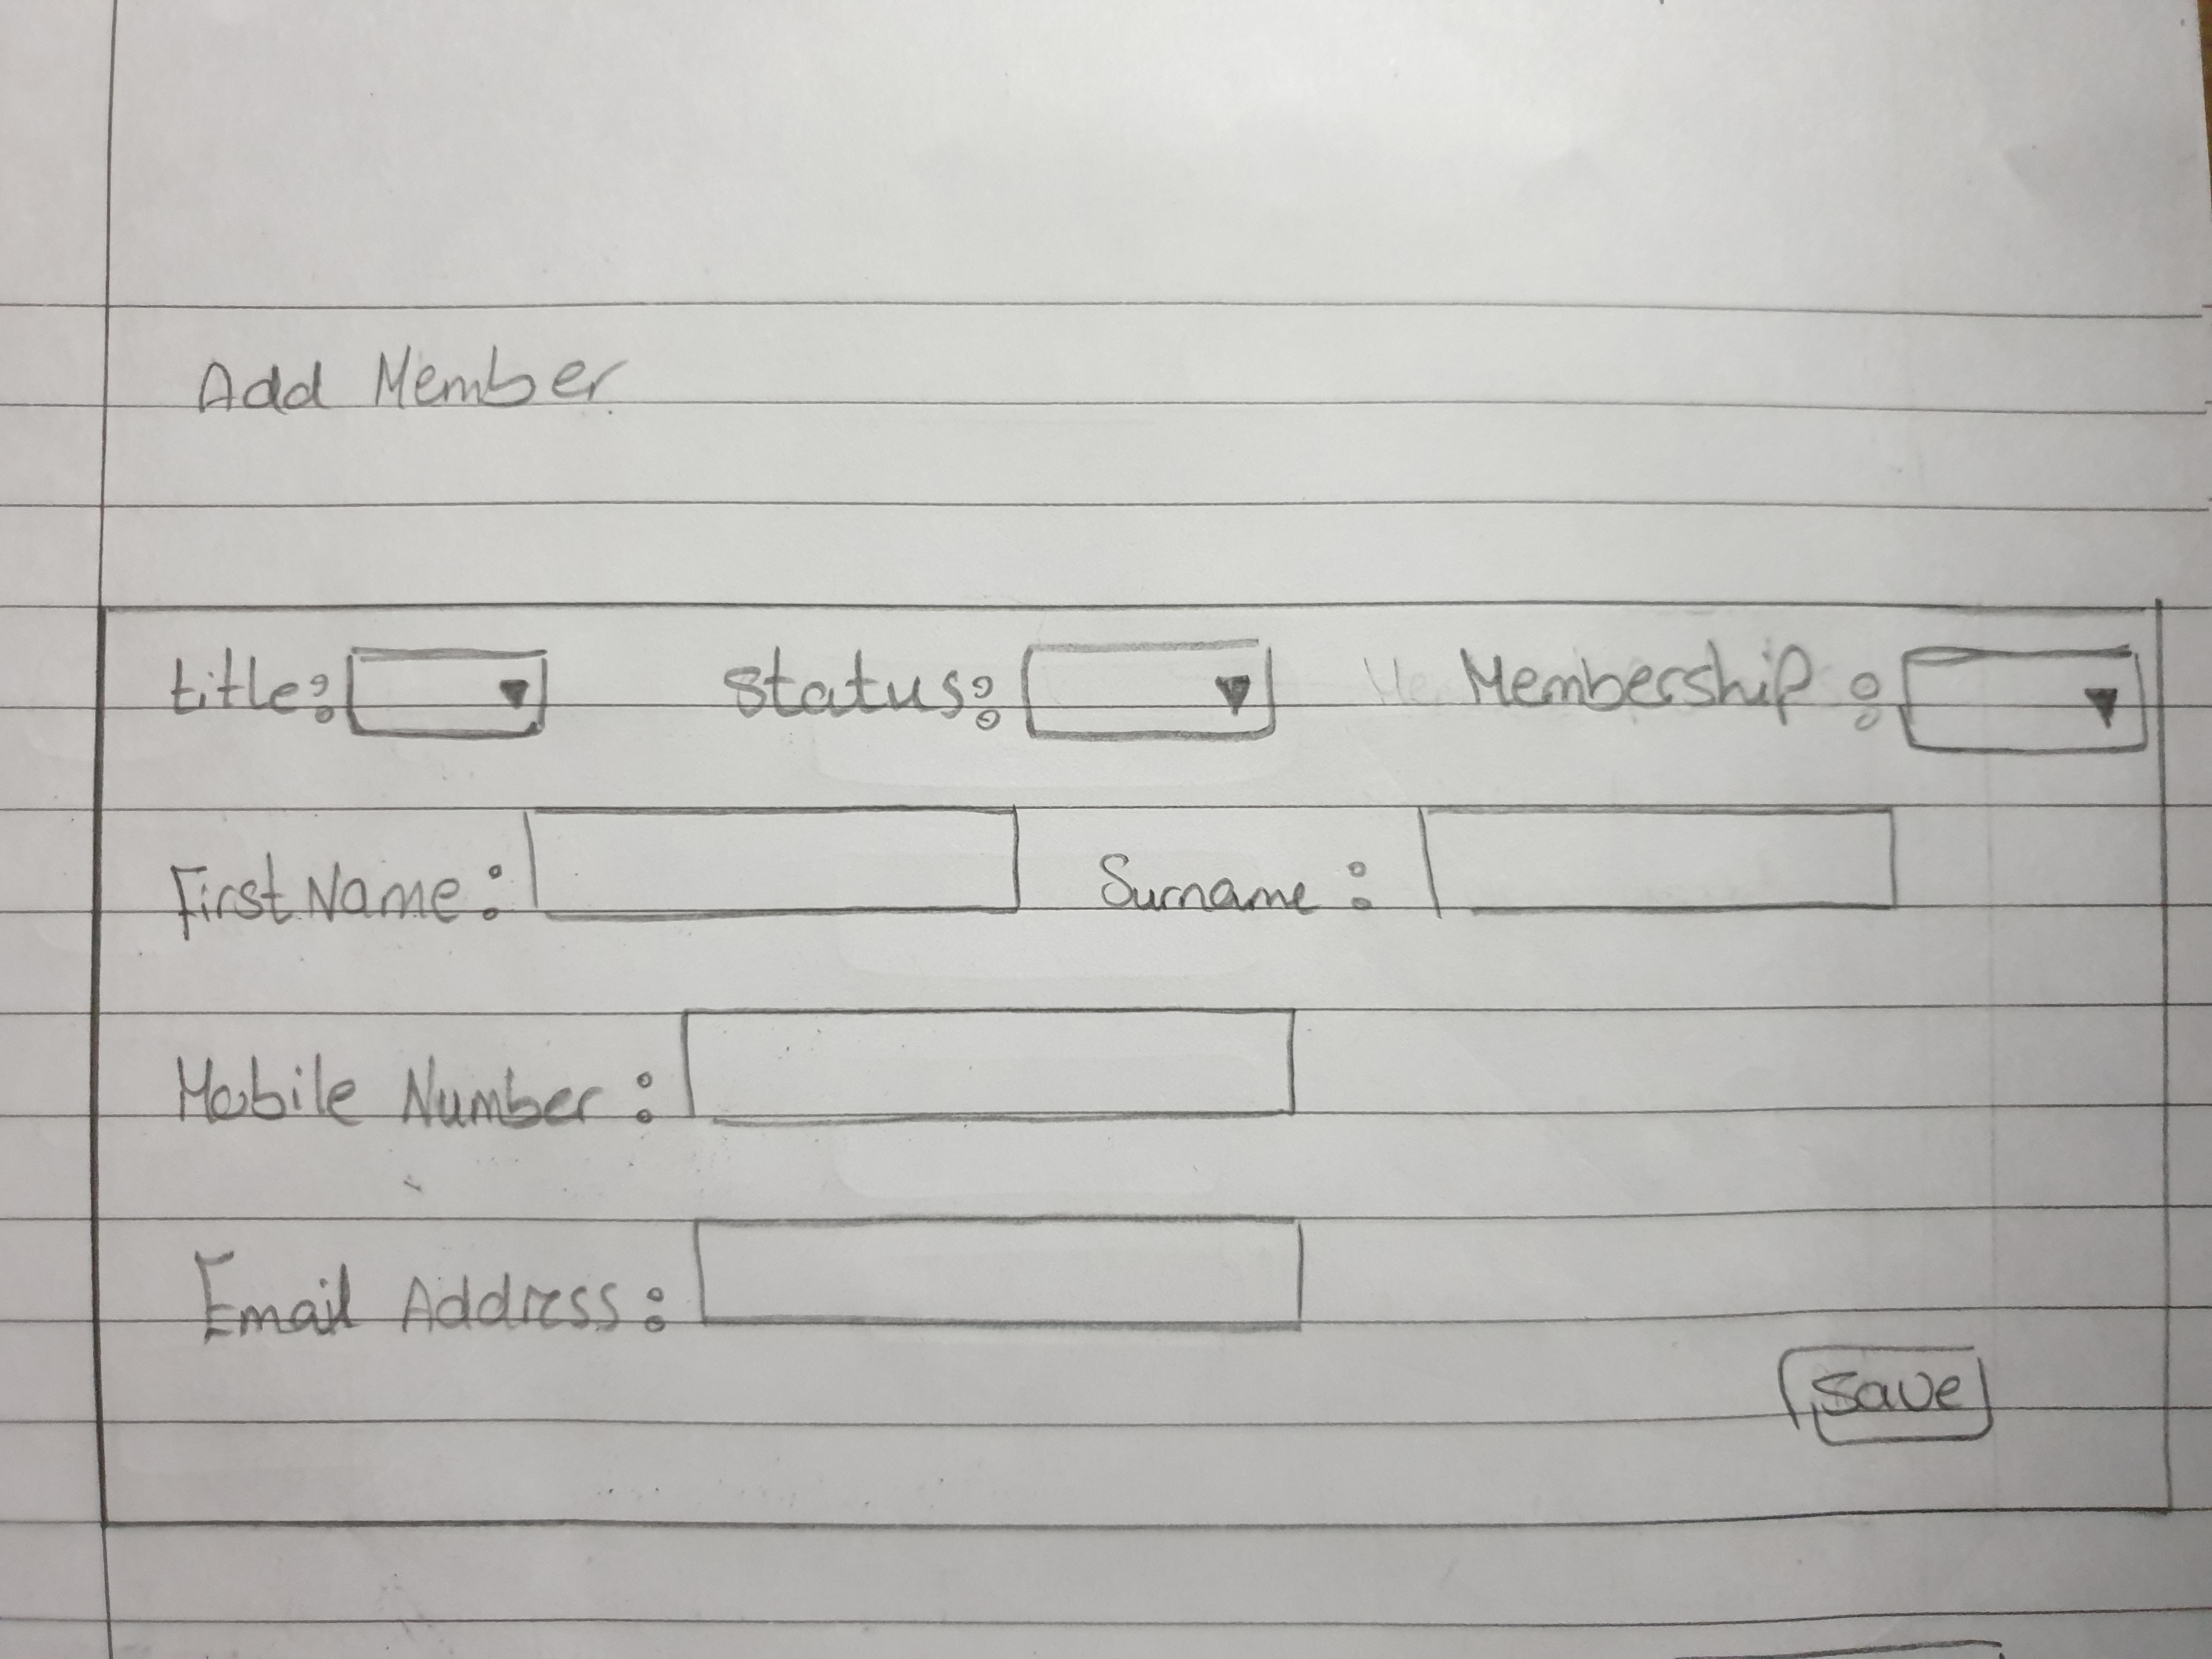 Add Member
title: Status: Membership:
First Name: Surname:
Mobile Number:
Email Address:
Save